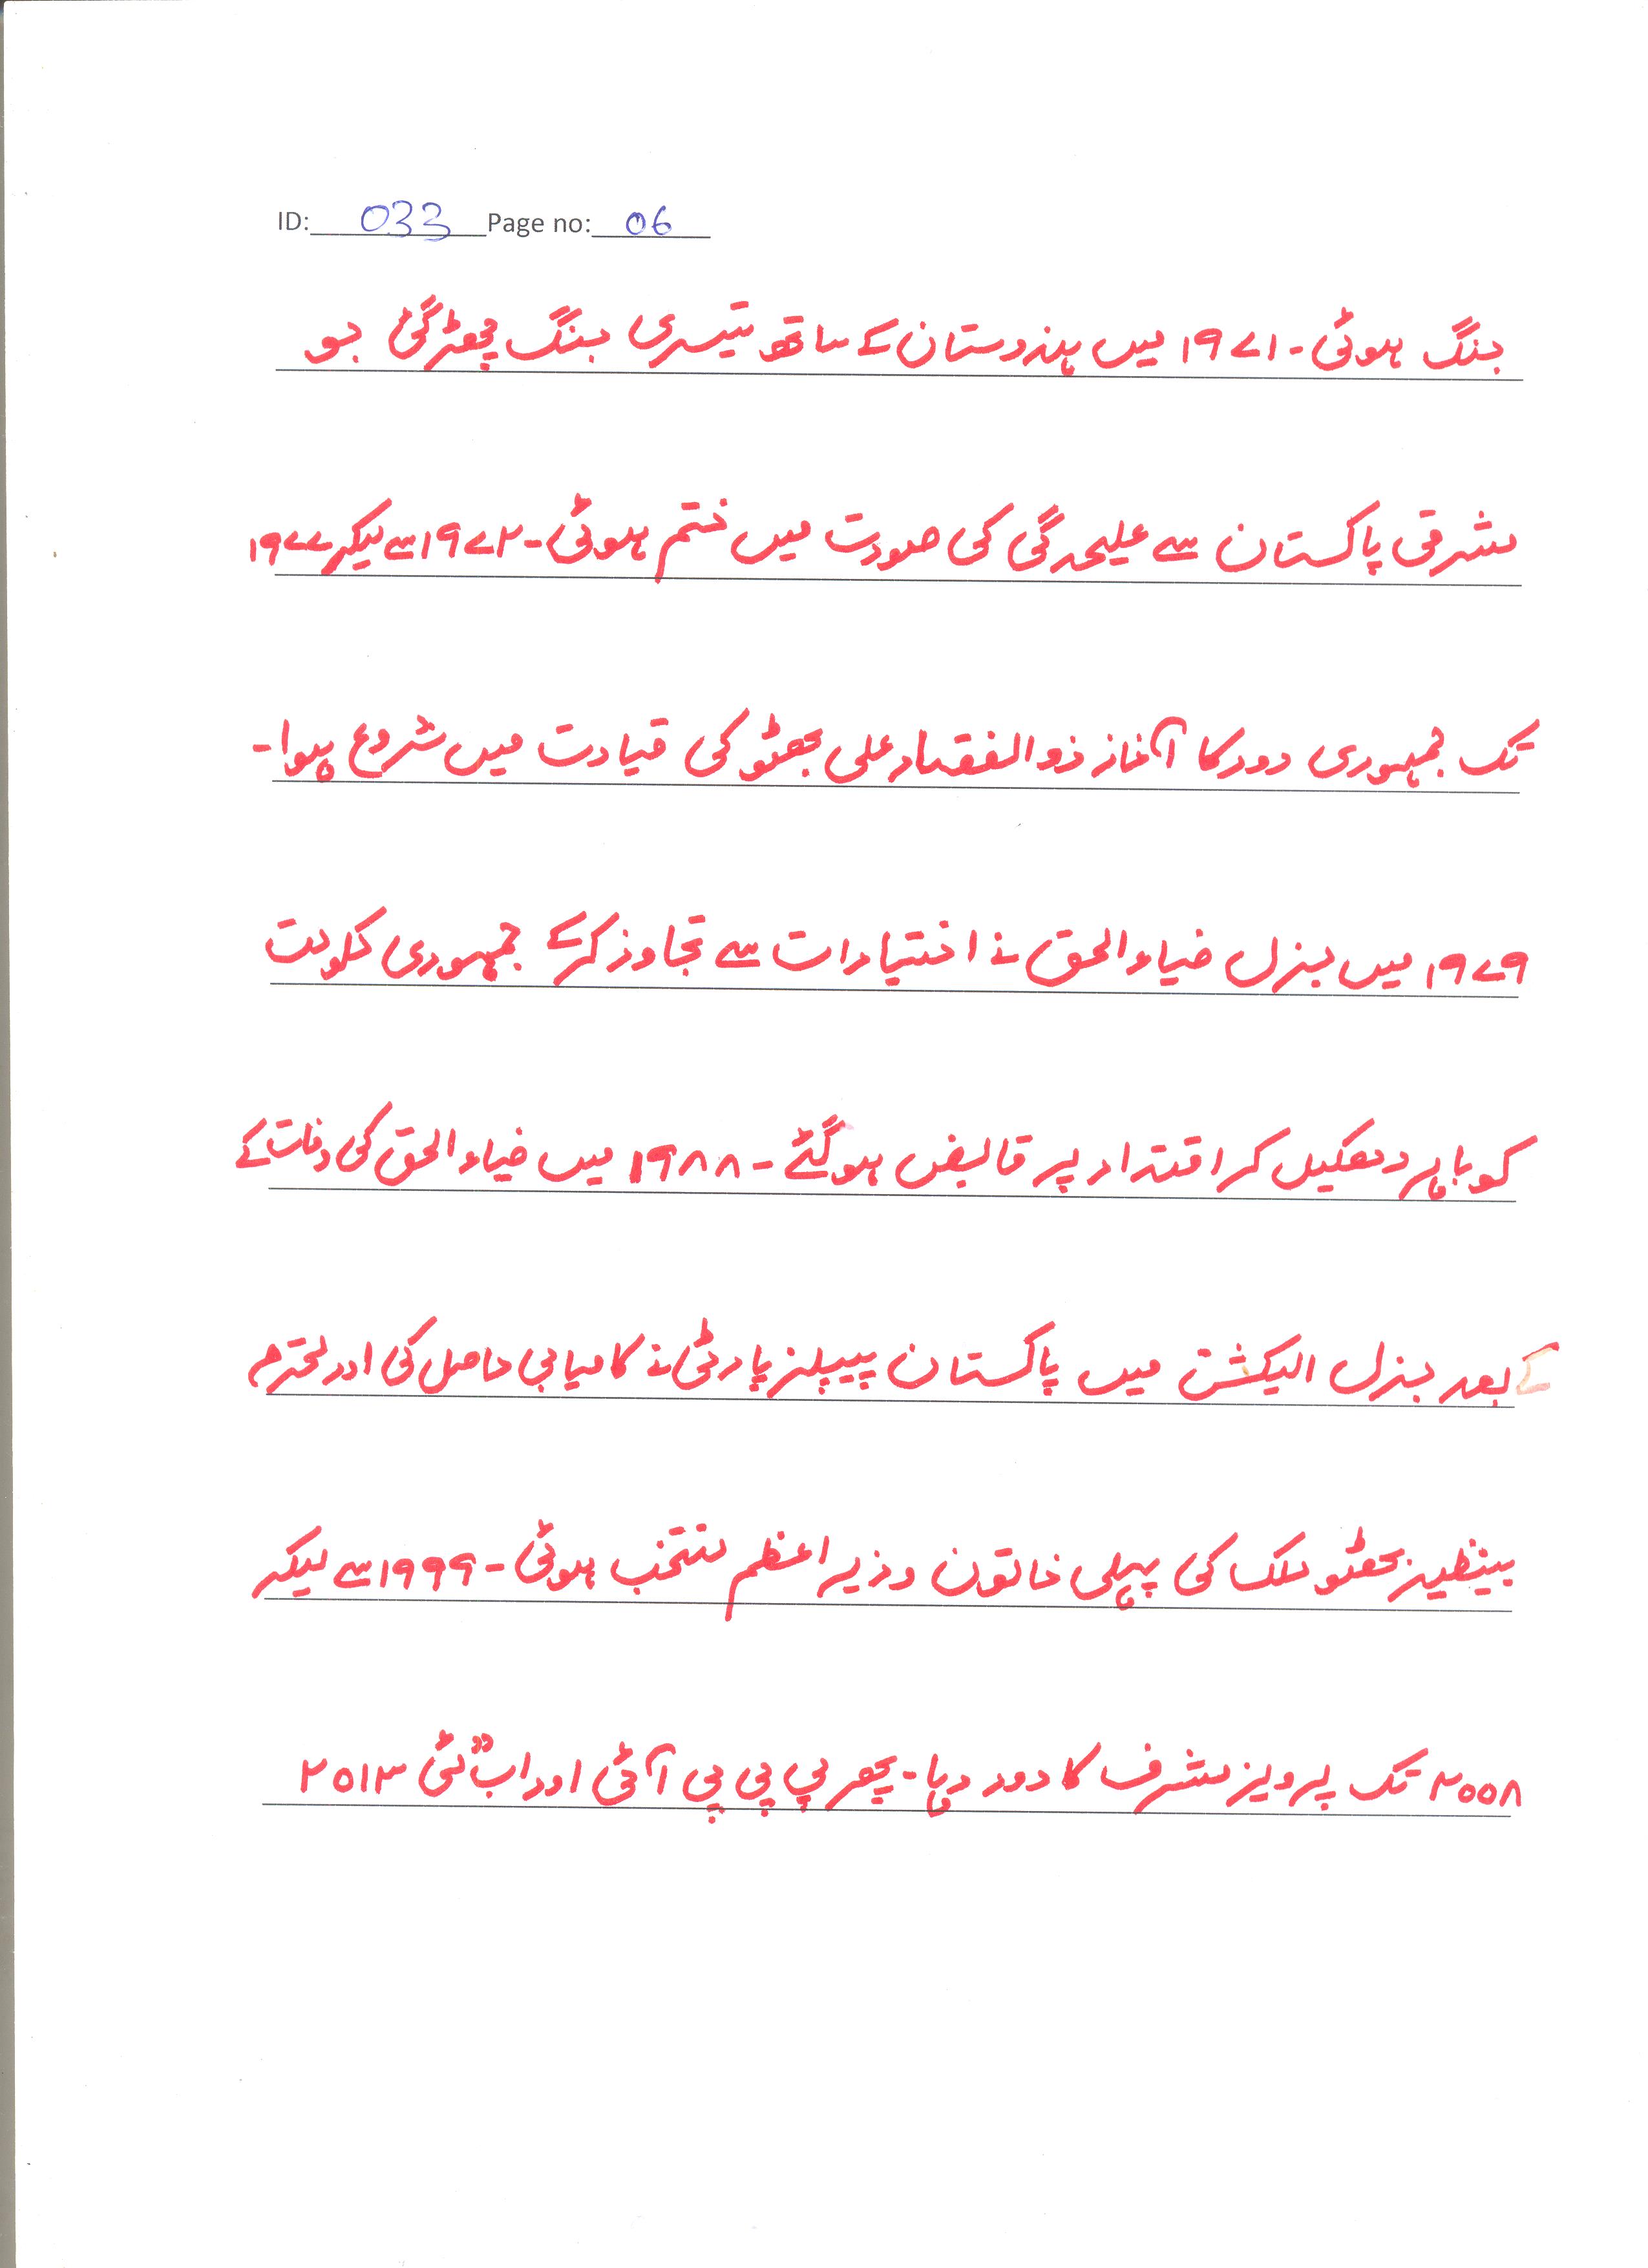 ID: 033 Page no: 06
جنگ ہوئی۔ ۱۹۷۱ میں ہندوستان کے ساتھ تیسری جنگ چھڑ گئی جو
مشرقی پاکستان سے علیحدگی کی صورت میں ختم ہوئی۔ ۱۹۷۲ سے لیکر ۱۹۷۷
تک جمہوری دور کا آغاز ذوالفقار علی بھٹو کی قیادت میں شروع ہوا۔
۱۹۷۹ میں جنرل ضیاء الحق نے اختیارات سے تجاوز کرکے جمہوری حکومت
کو باہر دھکیل کر اقتدار پر قابض ہو گئے۔ ۱۹۸۸ میں ضیاء الحق کی وفات کے
کے بعد جنرل الیکشن میں پاکستان پیپلز پارٹی نے کامیابی حاصل کی اور محترم
بینظیر بھٹو ملک کی پہلی خاتون وزیر اعظم منتخب ہوئی۔ ۱۹۹۹ سے لیکر
۲۰۰۸ تک پرویز مشرف کا دور رہا۔ پھر پی پی پی آئی اور اب ۲۰۱۳